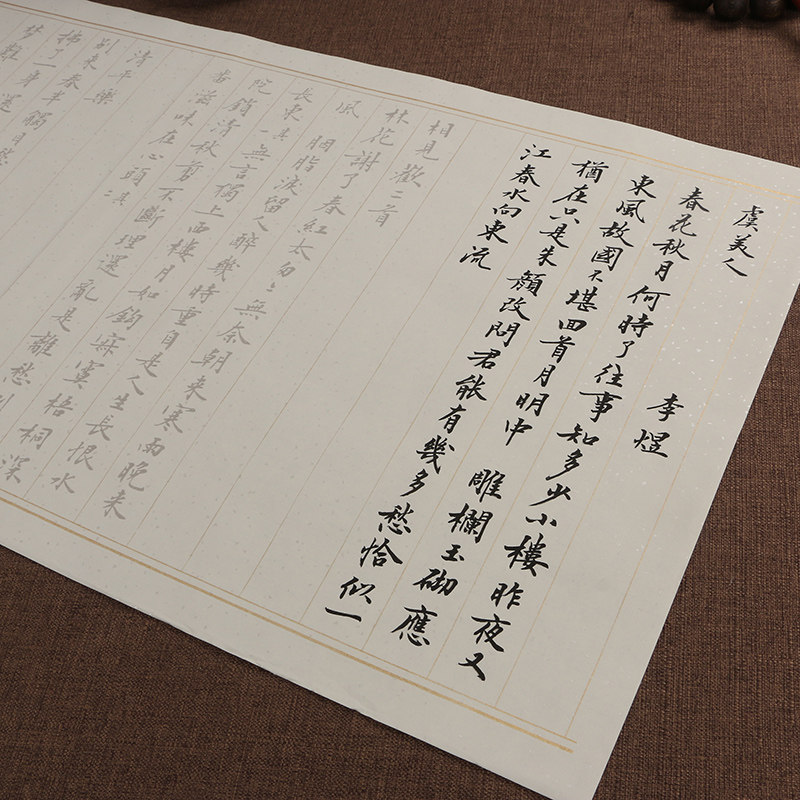 虞美人 李煜
春花秋月何時了往事知多少小樓昨夜又
東風故國不堪回首月明中 雕欄玉砌應
猶在只是朱顏改問君能有幾多愁恰似一
江春水向東流
相見歡二首
林花謝了春紅太匆匆無奈朝來寒雨晚來
風 胭脂淚留人醉幾時重自是人生長恨水
長東其二無言獨上西樓月如鈎寂寞梧桐深
院鎖清秋剪不斷理還亂是離愁別
番滋味在心頭
清平樂
別來春半觸目愁
拂了一身還
夢難